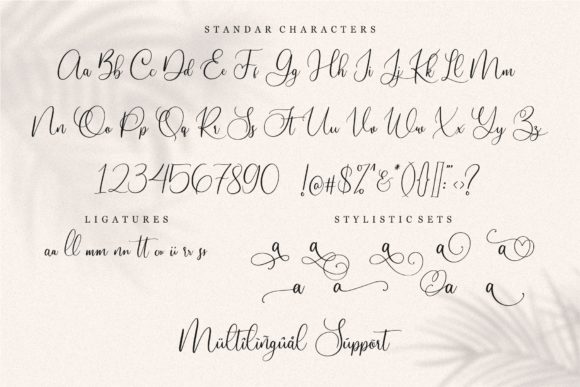 STANDAR CHARACTERS
Aa Bb Cc Dd Ee Ff Gg Hh Ii Jj Kk Ll Mm
Nn Oo Pp Qq Rr Ss Tt Uu Vv Ww Xx Yy Zz
1234567890 !@#$%^&*(){}[]:"'<>?
LIGATURES
aa ll mm nn tt oo ii rr ss
STYLISTIC SETS
a a a a a
a a a a
Mültilïñgüâl Süppört